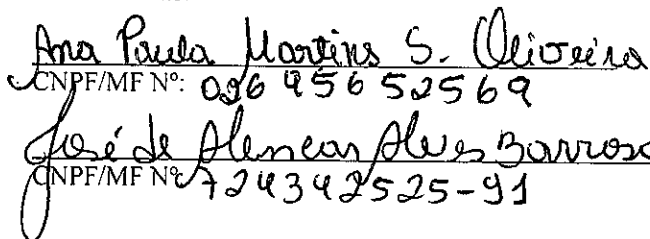 Ana Paula Martins S. Oliveira
CNPF/MF Nº: 026 956 525 69
José de Alencar Alves Barroso
CNPF/MF Nº 724342525-91